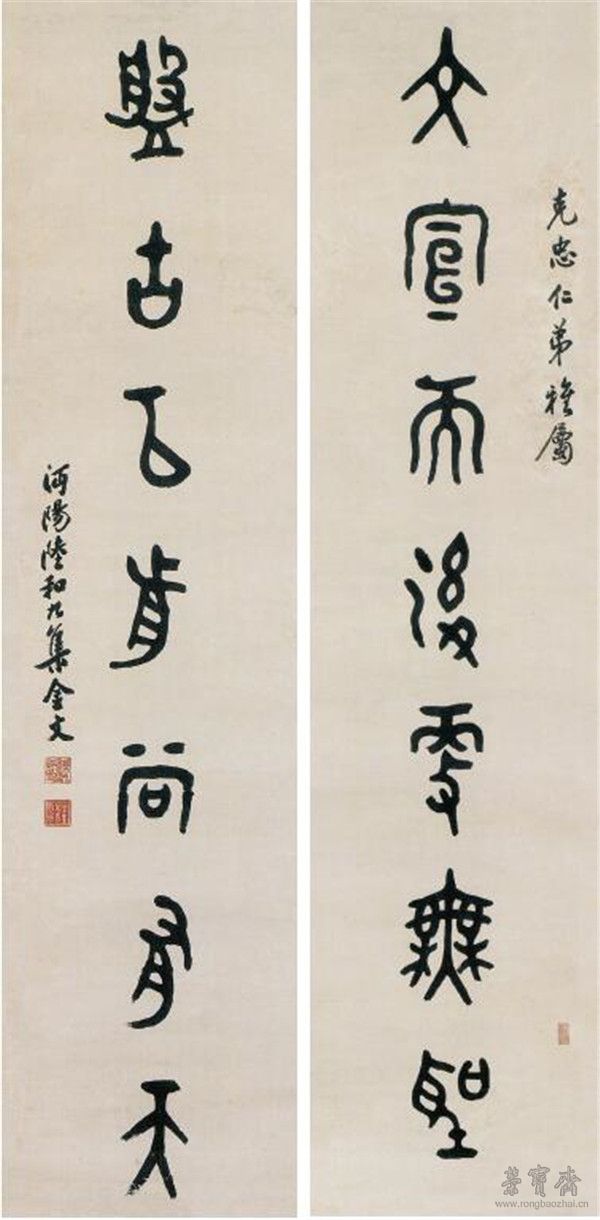 克忠仁弟雅屬
文宣而後無聖
盤古以前尚有天
沔陽陸和九集金文
榮寶齋
www.rongbaozhai.cn